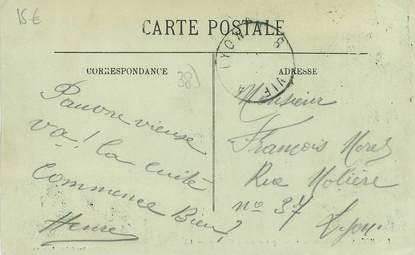 15€
CARTE POSTALE
CORRESPONDANCE
ADRESSE
38
Pauvre vieuse
va! la cuite
commence Bien?
Henri
Monsieur
François Morel
Rue Molière
n° 37
Lyon